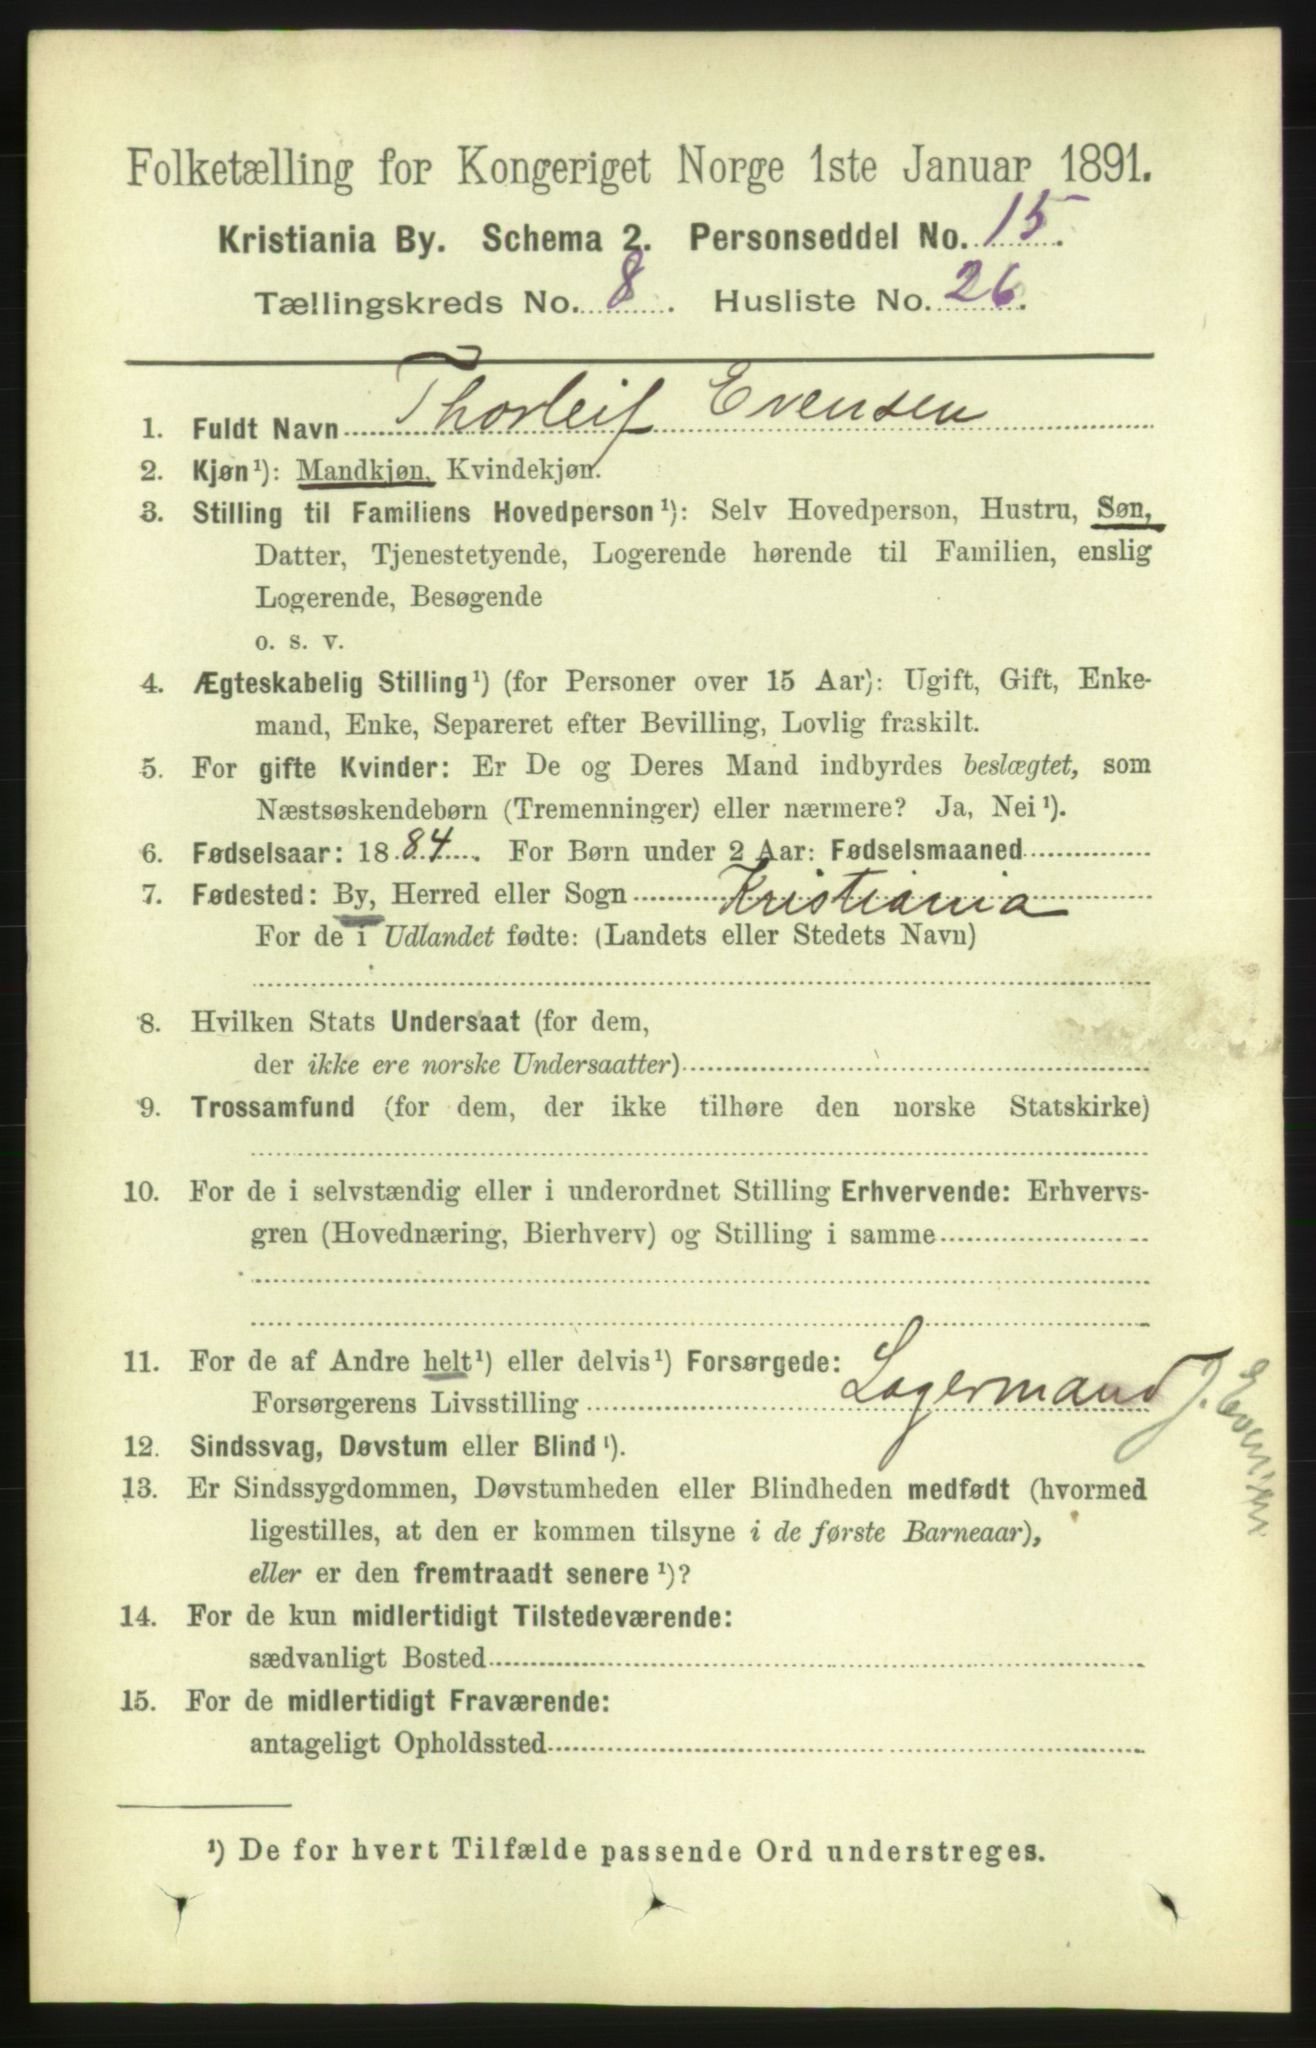 Folketælling for Kongeriget Norge 1ste Januar 1891.
Kristiania By. Schema 2. Personseddel No. 15.
Tællingskreds No. 8. Husliste No. 26.
1. Fuldt Navn Thorleif Evensen
2. Kjøn¹): Mandkjøn, Kvindekjøn.
3. Stilling til Familiens Hovedperson¹): Selv Hovedperson, Hustru, Søn,
Datter, Tjenestetyende, Logerende hørende til Familien, enslig
Logerende, Besøgende
o. s. v.
4. Ægteskabelig Stilling¹) (for Personer over 15 Aar): Ugift, Gift, Enke-
mand, Enke, Separeret efter Bevilling, Lovlig fraskilt.
5. For gifte Kvinder: Er De og Deres Mand indbyrdes beslægtet, som
Næstsøskendebørn (Tremenninger) eller nærmere? Ja, Nei¹).
6. Fødselsaar: 1884. For Børn under 2 Aar: Fødselsmaaned
7. Fødested: By, Herred eller Sogn Kristiania
For de i Udlandet fødte: (Landets eller Stedets Navn)
8. Hvilken Stats Undersaat (for dem,
der ikke ere norske Undersaatter)
9. Trossamfund (for dem, der ikke tilhøre den norske Statskirke)
10. For de i selvstændig eller i underordnet Stilling Erhvervende: Erhvervs-
gren (Hovednæring, Bierhverv) og Stilling i samme
11. For de af Andre helt¹) eller delvis¹) Forsørgede:
Forsørgerens Livsstilling Lagermand J. Evensen
12. Sindssvag, Døvstum eller Blind¹).
13. Er Sindssygdommen, Døvstumheden eller Blindheden medfødt (hvormed
ligestilles, at den er kommen tilsyne i de første Barneaar),
eller er den fremtraadt senere¹)?
14. For de kun midlertidigt Tilstedeværende:
sædvanligt Bosted
15. For de midlertidigt Fraværende:
antageligt Opholdssted
¹) De for hvert Tilfælde passende Ord understreges.